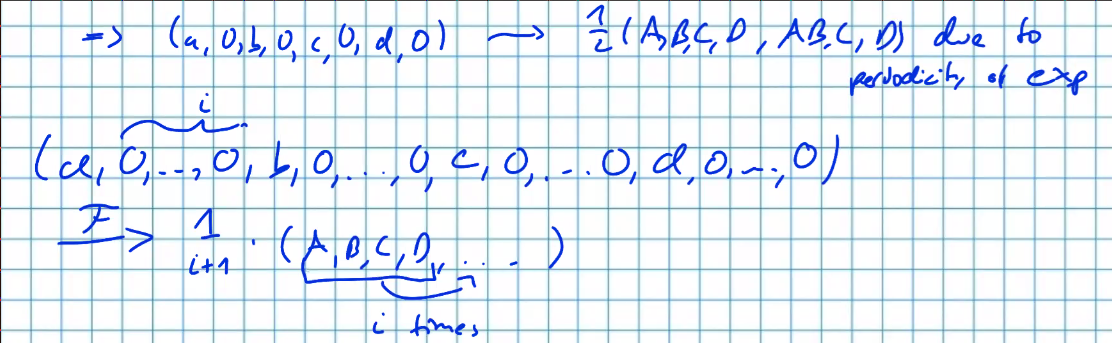 => (a, 0, b, 0, c, 0, d, 0) → 1/2 (A, B, C, D, A B, C, D) due to
periodicity of exp
i
(a, 0, ..., 0, b, 0, ..., 0, c, 0, ... 0, d, 0, ..., 0)
F→ 1/(i+1) · (A, B, C, D, ... )
i times